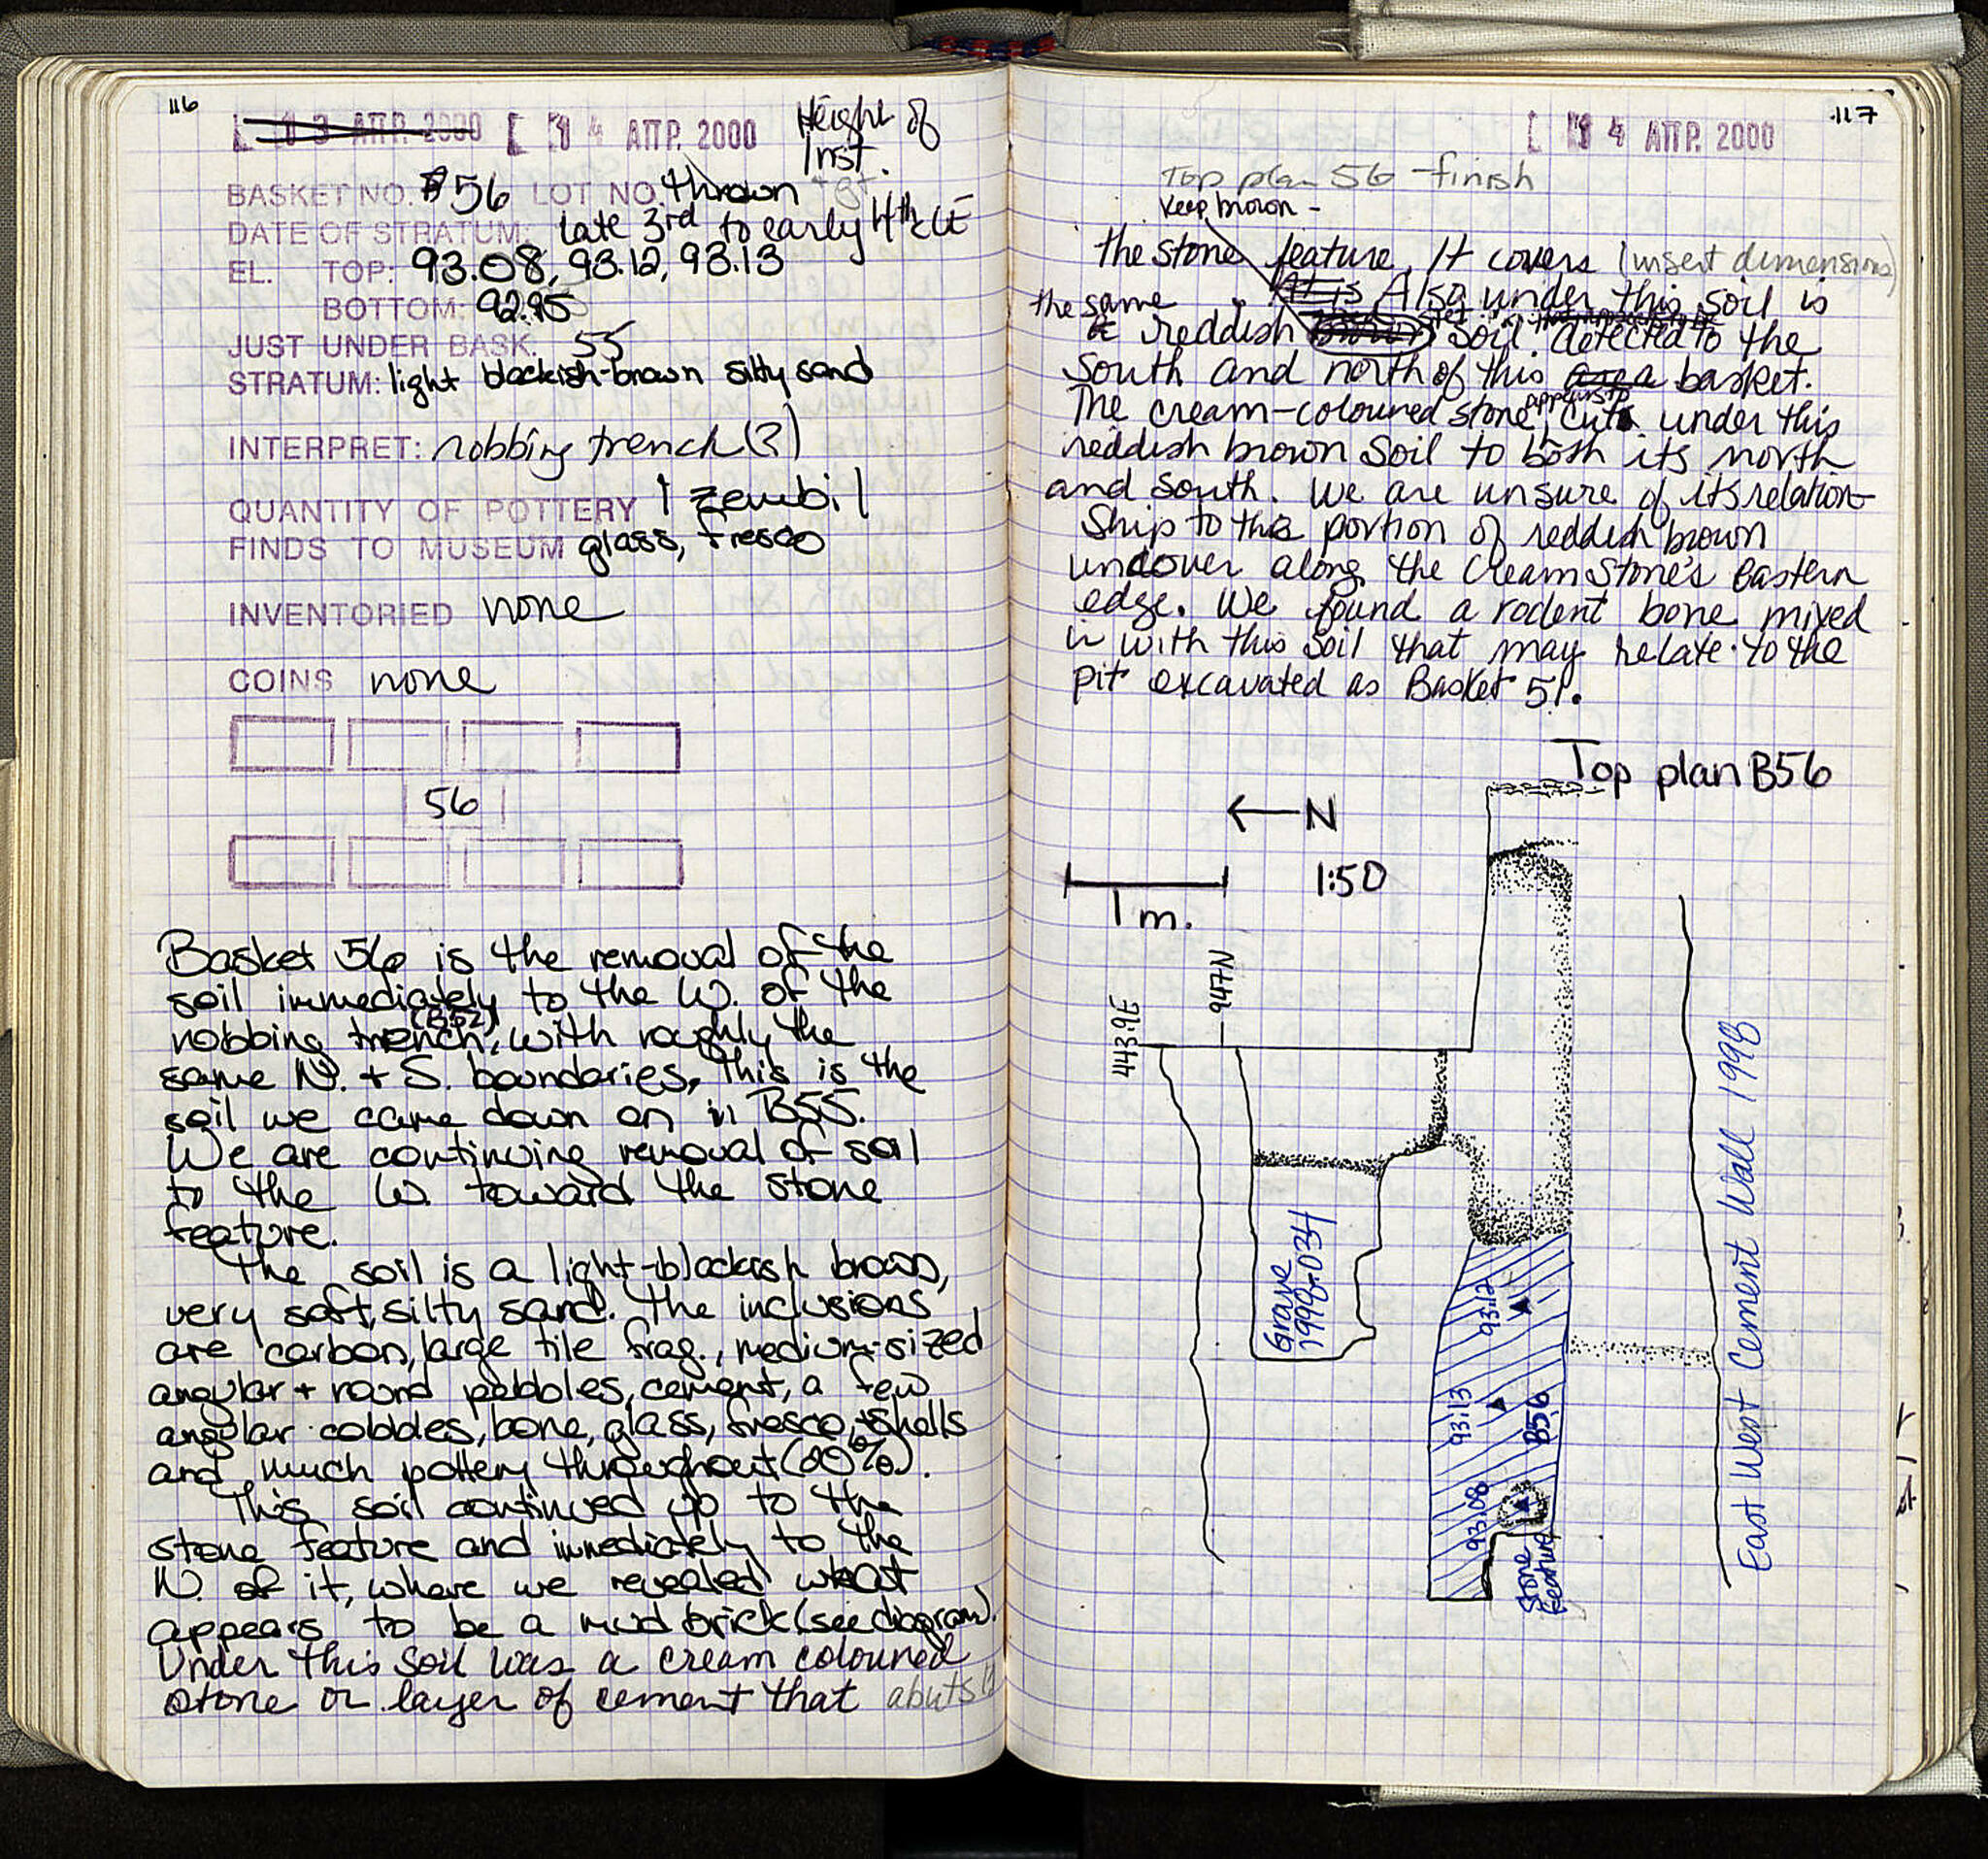 116
13 ΑΠΡ. 2000 14 ΑΠΡ. 2000 Height of
Inst.
BASKET NO. B56 LOT NO. thrown
DATE OF STRATUM: late 3rd to early 4th CE
EL. TOP: 93.08, 93.12, 93.13
BOTTOM: 92.95
JUST UNDER BASK. 55
STRATUM: light blackish-brown silty sand
INTERPRET: robbing trench (?)
QUANTITY OF POTTERY 1 zembil
FINDS TO MUSEUM glass, fresco
INVENTORIED none
COINS none
56
Basket 56 is the removal of the
soil immediately to the W. of the
robbing trench (B52), with roughly the
same N. + S. boundaries. This is the
soil we came down on in B55.
We are continuing removal of soil
to the W. toward the stone
feature.
The soil is a light-blackish brown,
very soft, silty sand. The inclusions
are carbon, large tile frag., medium-sized
angular + round pebbles, cement, a few
angular cobbles, bone, glass, fresco, + shells
and much pottery throughout (60%).
This soil continued up to the
stone feature and immediately to the
N. of it, where we revealed what
appears to be a mud brick (see diagram).
Under this soil was a cream coloured
stone or layer of cement that abuts
117
14 ΑΠΡ. 2000
Top plan 56 - finish
keep brown -
the stone feature. It covers (insert dimensions)
At is Also under this soil is
the same reddish brown stet soil detected to the
south and north of this area basket.
The cream-coloured stone appears to cut under this
reddish brown soil to both its north
and south. We are unsure of its relation-
ship to this portion of reddish brown
uncover along the cream stone's eastern
edge. We found a rodent bone mixed
in with this soil that may relate to the
pit excavated as Basket 51.
Top plan B56
← N
1:50
1 m.
N446
443.97
Grave
1998-034
93.12
93.13
B56
93.08
Stone
feature
East West Cement Wall 1998